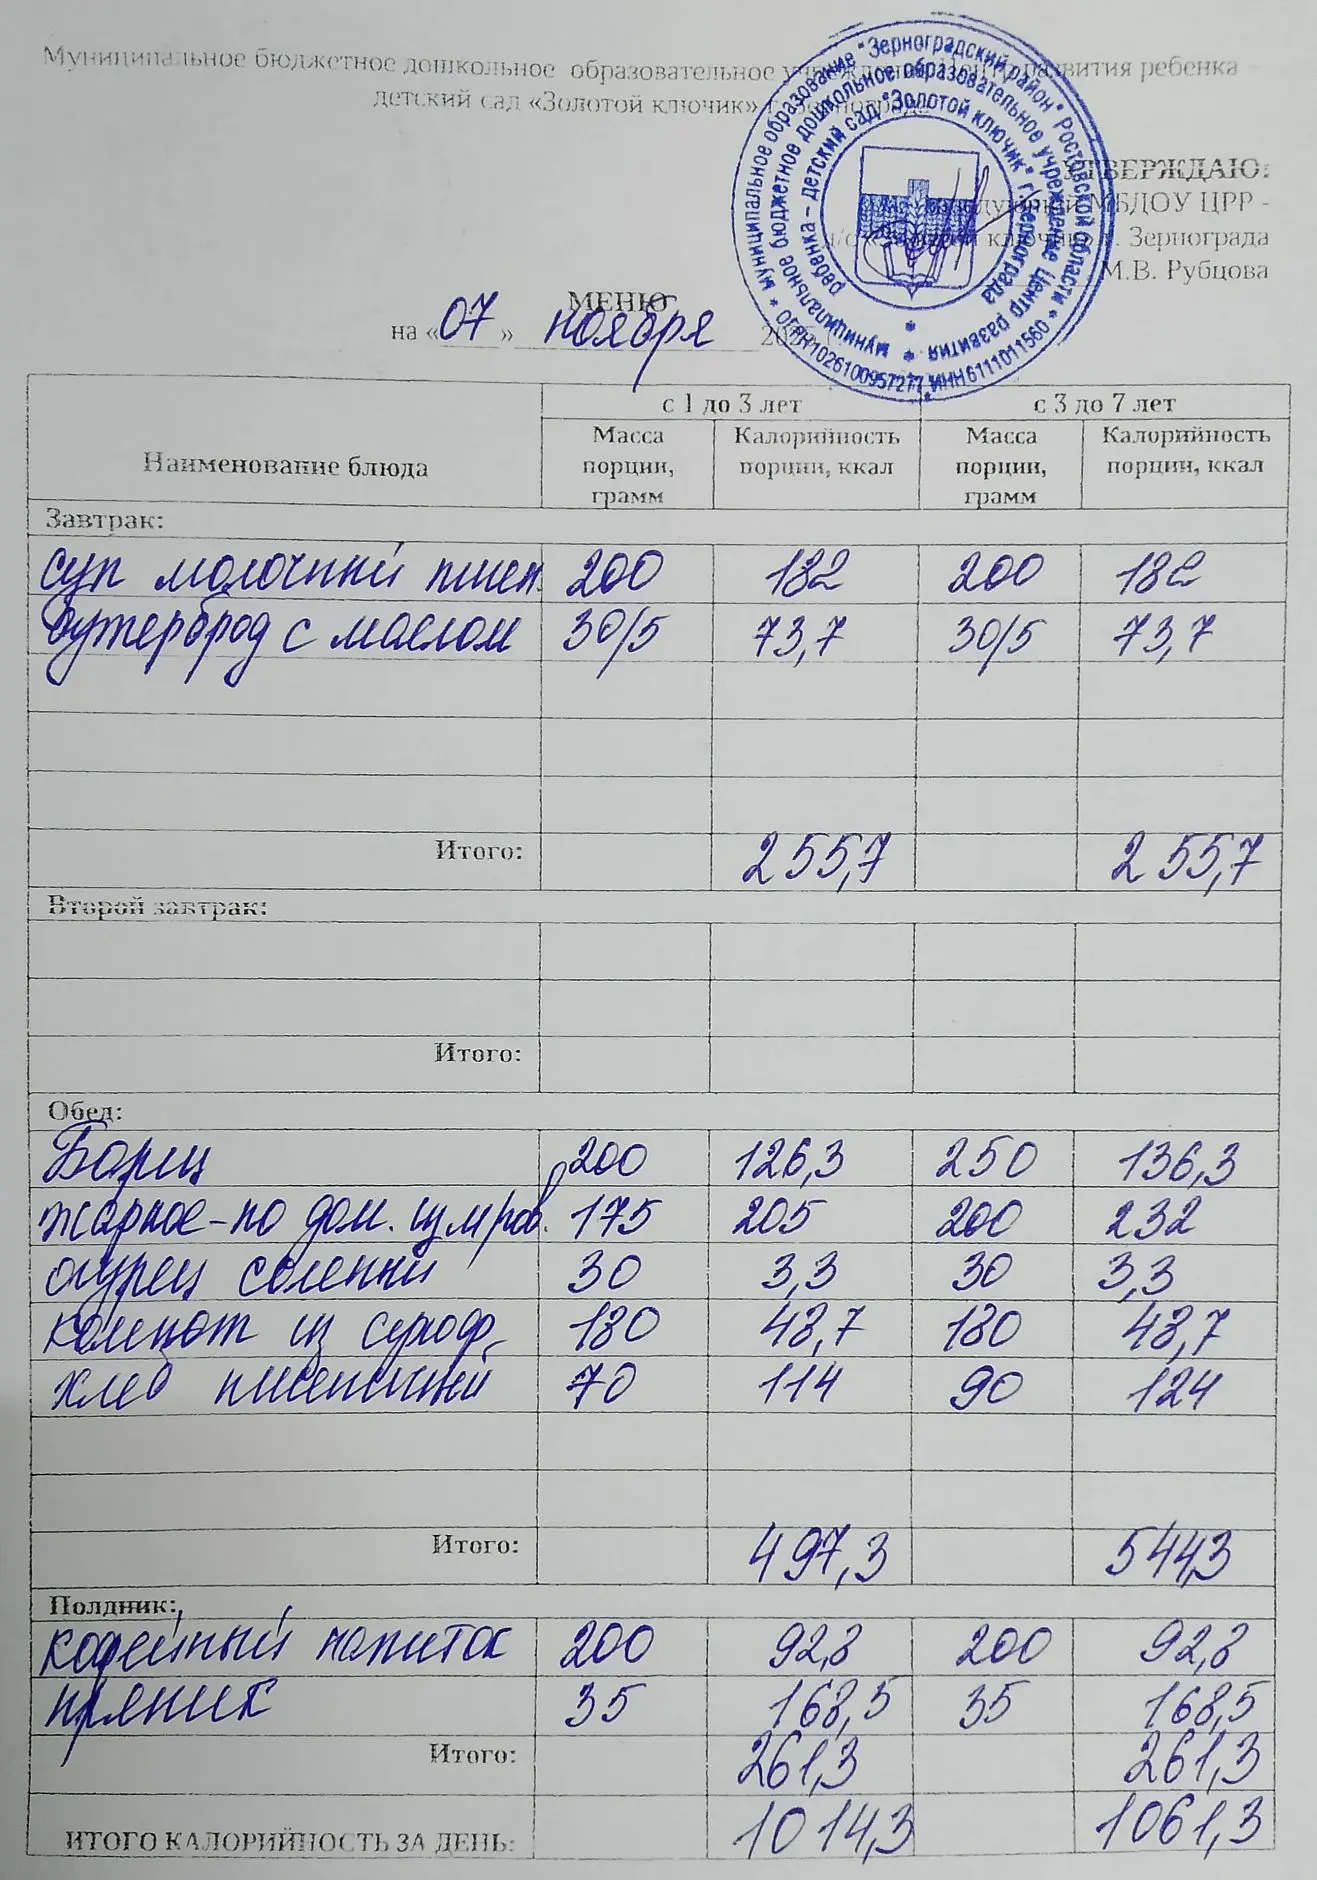 Муниципальное бюджетное дошкольное образовательное учреждение Центр развития ребенка –
детский сад «Золотой ключик» г. Зернограда
УТВЕРЖДАЮ:
Заведующий МБДОУ ЦРР -
д/с «Золотой ключик» г. Зернограда
М.В. Рубцова
* муниципальное образование "Зерноградский район" Ростовской области * ОГРН1026100957277 * ИНН6111011560
* муниципальное бюджетное дошкольное образовательное учреждение Центр развития
ребенка – детский сад "Золотой ключик" г. Зернограда *
МЕНЮ
на «07» ноября
Наименование блюда с 1 до 3 лет с 3 до 7 лет
Масса порции, грамм Калорийность порции, ккал Масса порции, грамм Калорийность порции, ккал
Завтрак:
суп молочный пшен. 200 182 200 182
бутерброд с маслом 30/5 73,7 30/5 73,7
Итого: 255,7 255,7
Второй завтрак:
Итого:
Обед:
Борщ 200 126,3 250 136,3
жаркое-по дом. 175 205 200 232
огурец соленый 30 3,3 30 3,3
компот из сухоф. 180 48,7 180 48,7
хлеб пшеничный 70 114 90 124
Итого: 497,3 544,3
Полдник:
кофейный напиток 200 92,8 200 92,8
пряник 35 168,5 35 168,5
Итого: 261,3 261,3
ИТОГО КАЛОРИЙНОСТЬ ЗА ДЕНЬ: 1014,3 1061,3